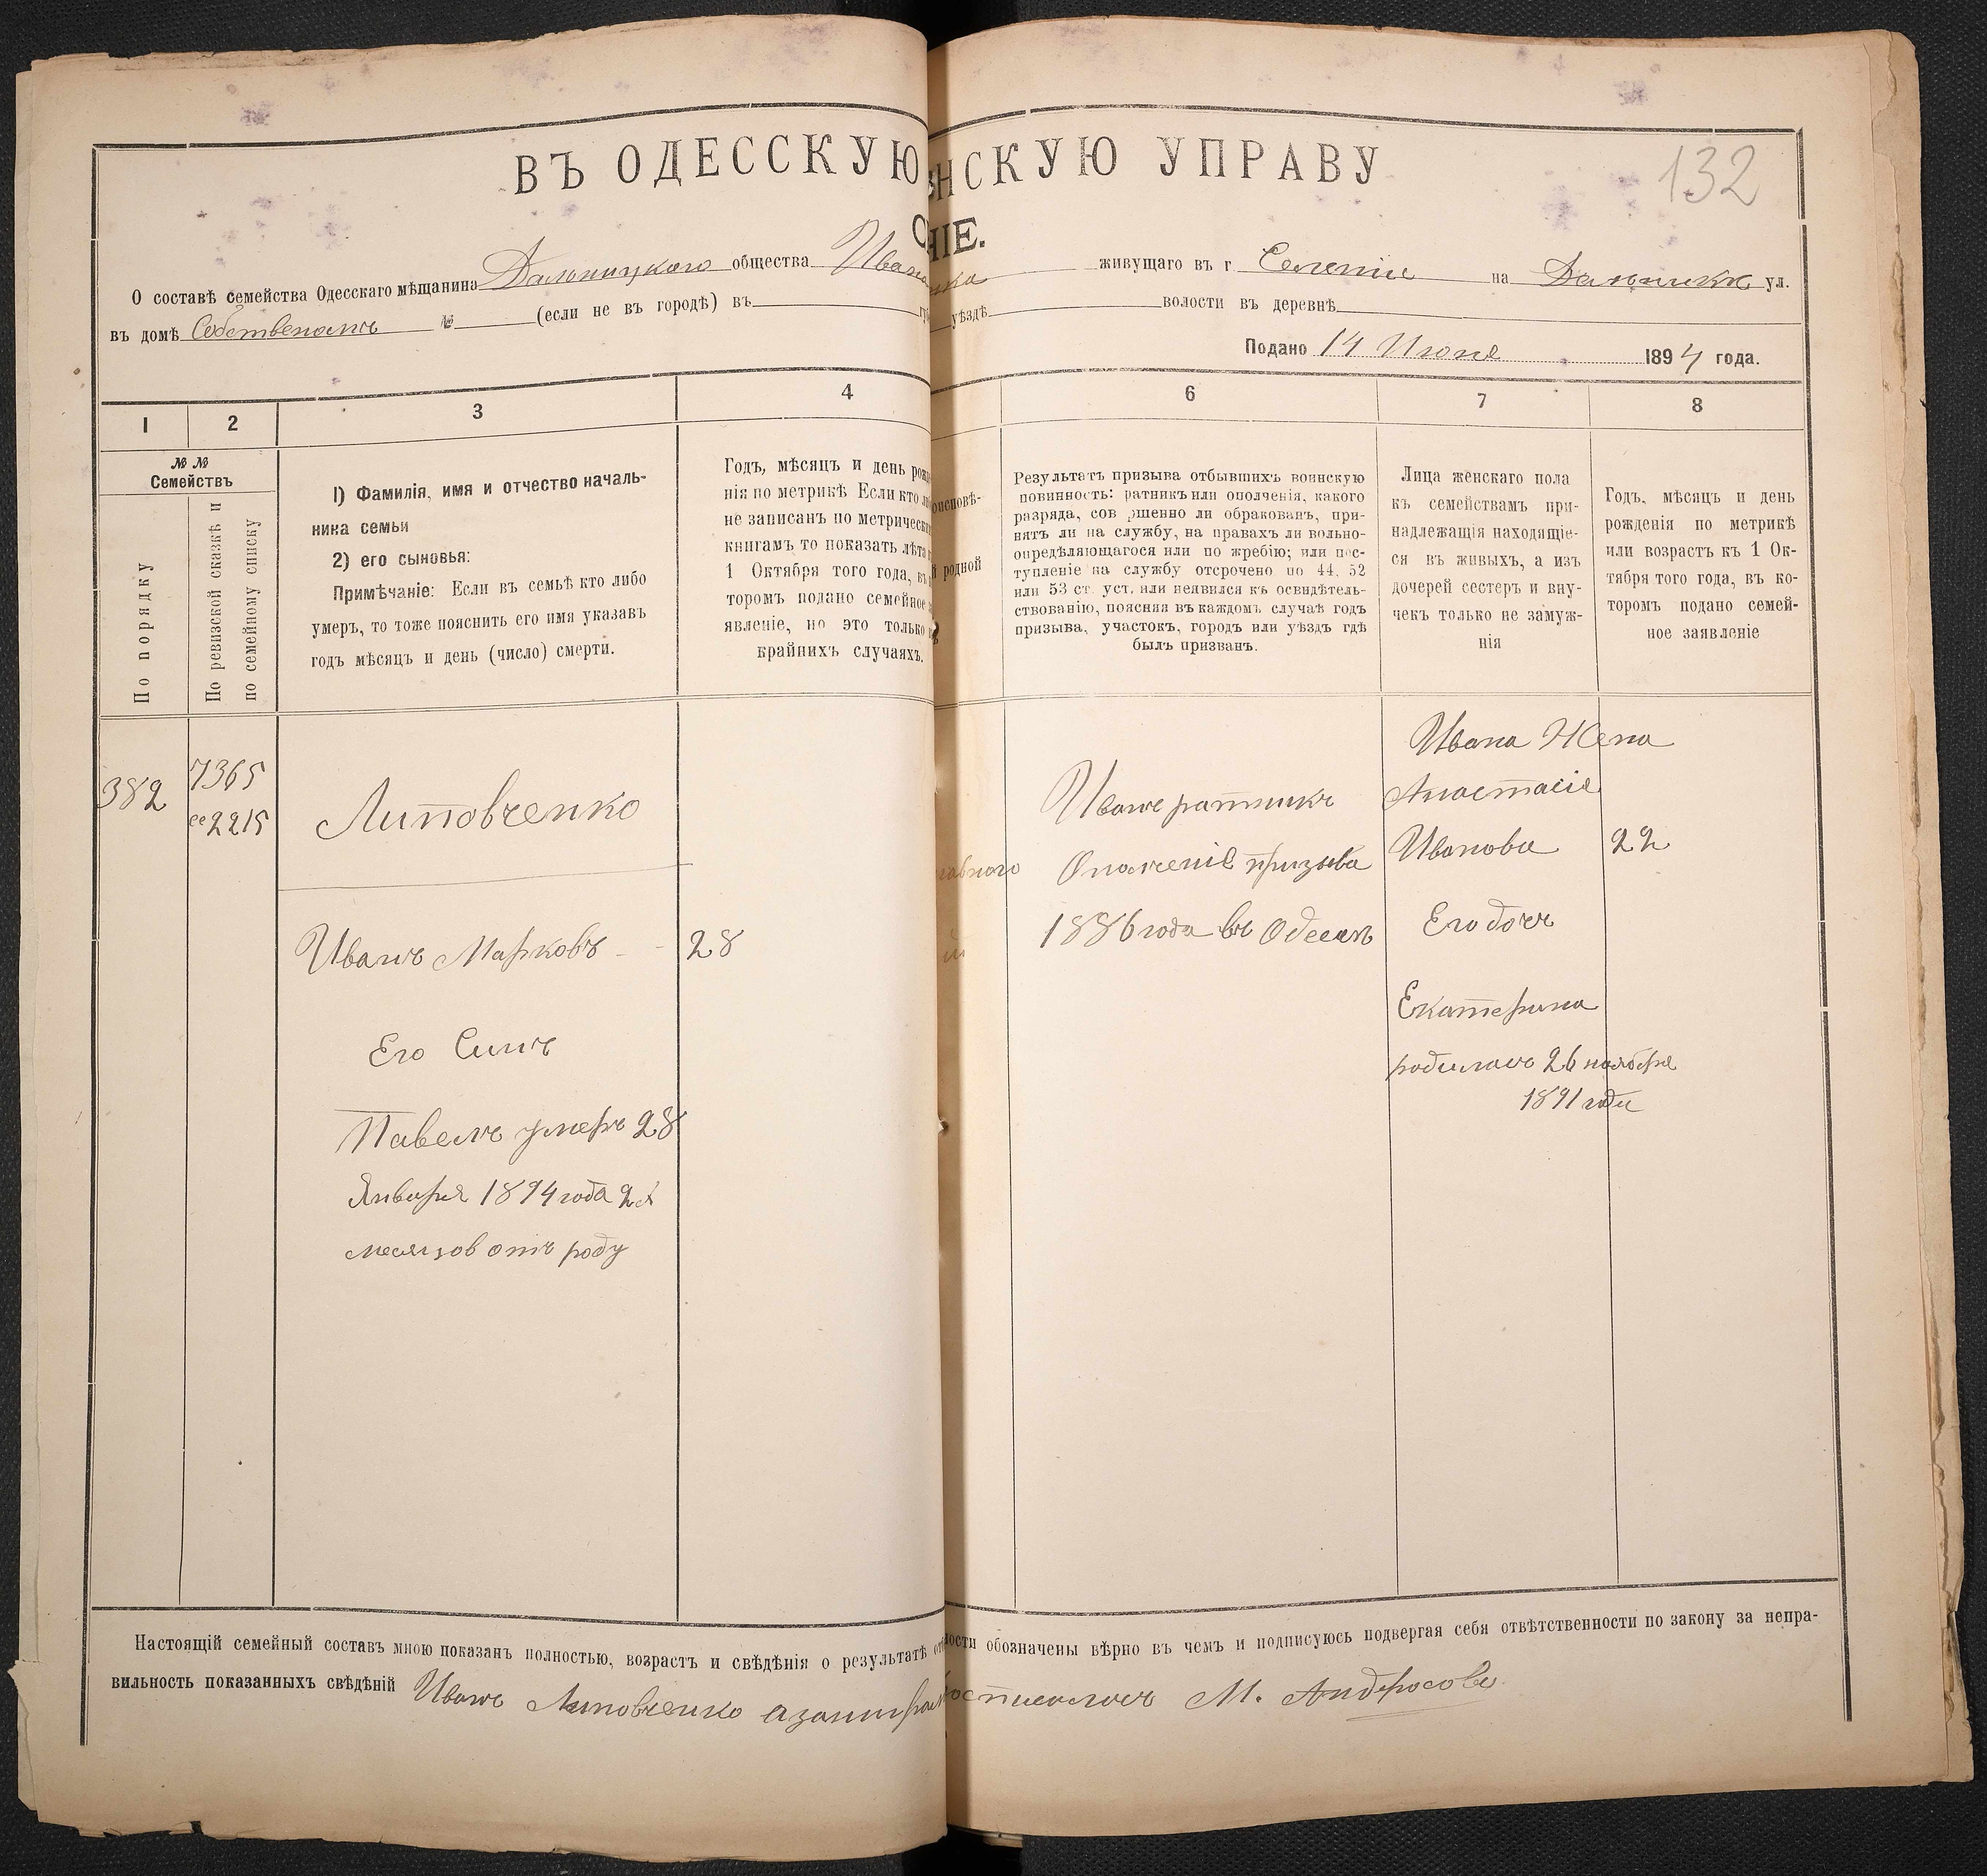 132
ВЪ ОДЕССКУЮ НСКУЮ УПРАВУ
НІЕ.
О составѣ семейства Одесскаго мѣщанина Дальницкаго общества Ивана живущаго въ г Селеніи на Дальникѣ ул.
въ домѣ Собственомъ № (если не въ городѣ) въ уѣздѣ волости въ деревнѣ
Подано 14 Июня 1894 года.
1 2 3 4 6 7 8
№ №
Семействъ
По порядку
По ревизской сказкѣ и
по семейному списку
1) Фамилія, имя и отчество началь-
ника семьи
2) его сыновья:
Примѣчаніе: Если въ семьѣ кто либо
умеръ, то тоже пояснить его имя указавъ
годъ мѣсяцъ и день (число) смерти.
Годъ, мѣсяцъ и день рож
нія по метрикѣ Если кто
не записанъ по метрически
книгамъ то показать лѣта
1 Октября того года, въ
торомъ подано семейное
явленіе, но это только
крайнихъ случаяхъ.
оисповѣ-
й родной
Результатъ призыва отбывшихъ воинскую
повинность: ратникъ или ополченія, какого
разряда, сов ршенно ли обракованъ, при-
нятъ ли на службу, на правахъ ли вольно-
опредѣляющагося или по жребію; или пос-
тупленіе на службу отсрочено по 44, 52
или 53 ст. уст. или неявился къ освидѣтель-
ствованію, поясняя въ каждомъ случаѣ годъ
призыва, участокъ, городъ или уѣздъ гдѣ
былъ призванъ.
Лица женскаго пола
къ семействамъ при-
надлежащія находящіе-
ся въ живыхъ, а изъ
дочерей сестеръ и вну-
чекъ только не замуж-
нія
Годъ, мѣсяцъ и день
рожденія по метрикѣ
или возрастъ къ 1 Ок-
тября того года, въ ко-
торомъ подано семей-
ное заявленіе
382
7365
2215
Липовченко
Иванъ Марковъ - 28
Его Сынъ
Павелъ умеръ 28
Января 1894 года
месяцов отъ роду
Иванъ ратникъ
Ополченіе призыва
1886 года въ Одессѣ
Ивана Жена
Анастасіе
Иванова 22
Его дочь
Екатерина
родилась 26 ноября
1891 года
Настоящій семейный составъ мною показанъ полностью, возрастъ и свѣдѣнія о результатѣ ности обозначены вѣрно въ чемъ и подписуюсь подвергая себя отвѣтственности по закону за непра-
вильность показанныхъ свѣдѣній Иванъ Липовченко М. Андросовъ